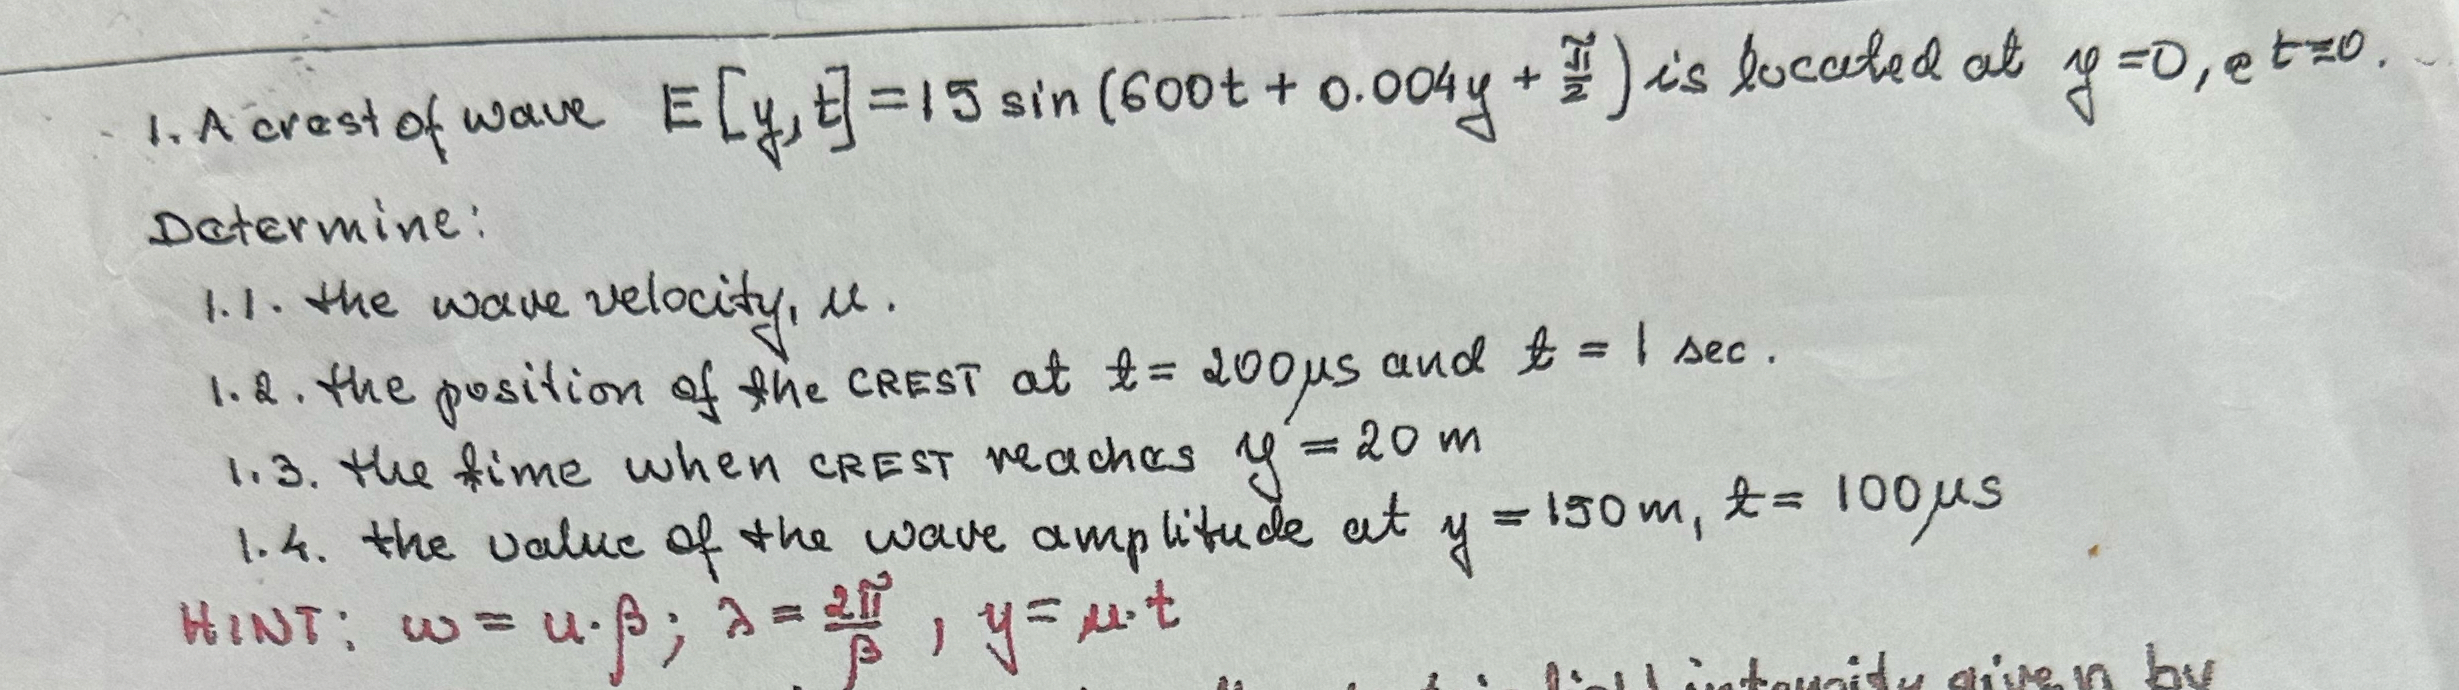 1. A crest of wave E[y,t]=15 sin(600t + 0.004y + π/2) is located at y=0, @ t=0.
Determine:
1.1. the wave velocity, u.
1.2. the position of the CREST at t = 200μs and t = 1 sec.
1.3. the time when CREST reaches y = 20 m
1.4. the value of the wave amplitude at y = 150 m, t = 100μs
HINT: ω = u·β; λ = 2π/β, y = u·t
intensity given by